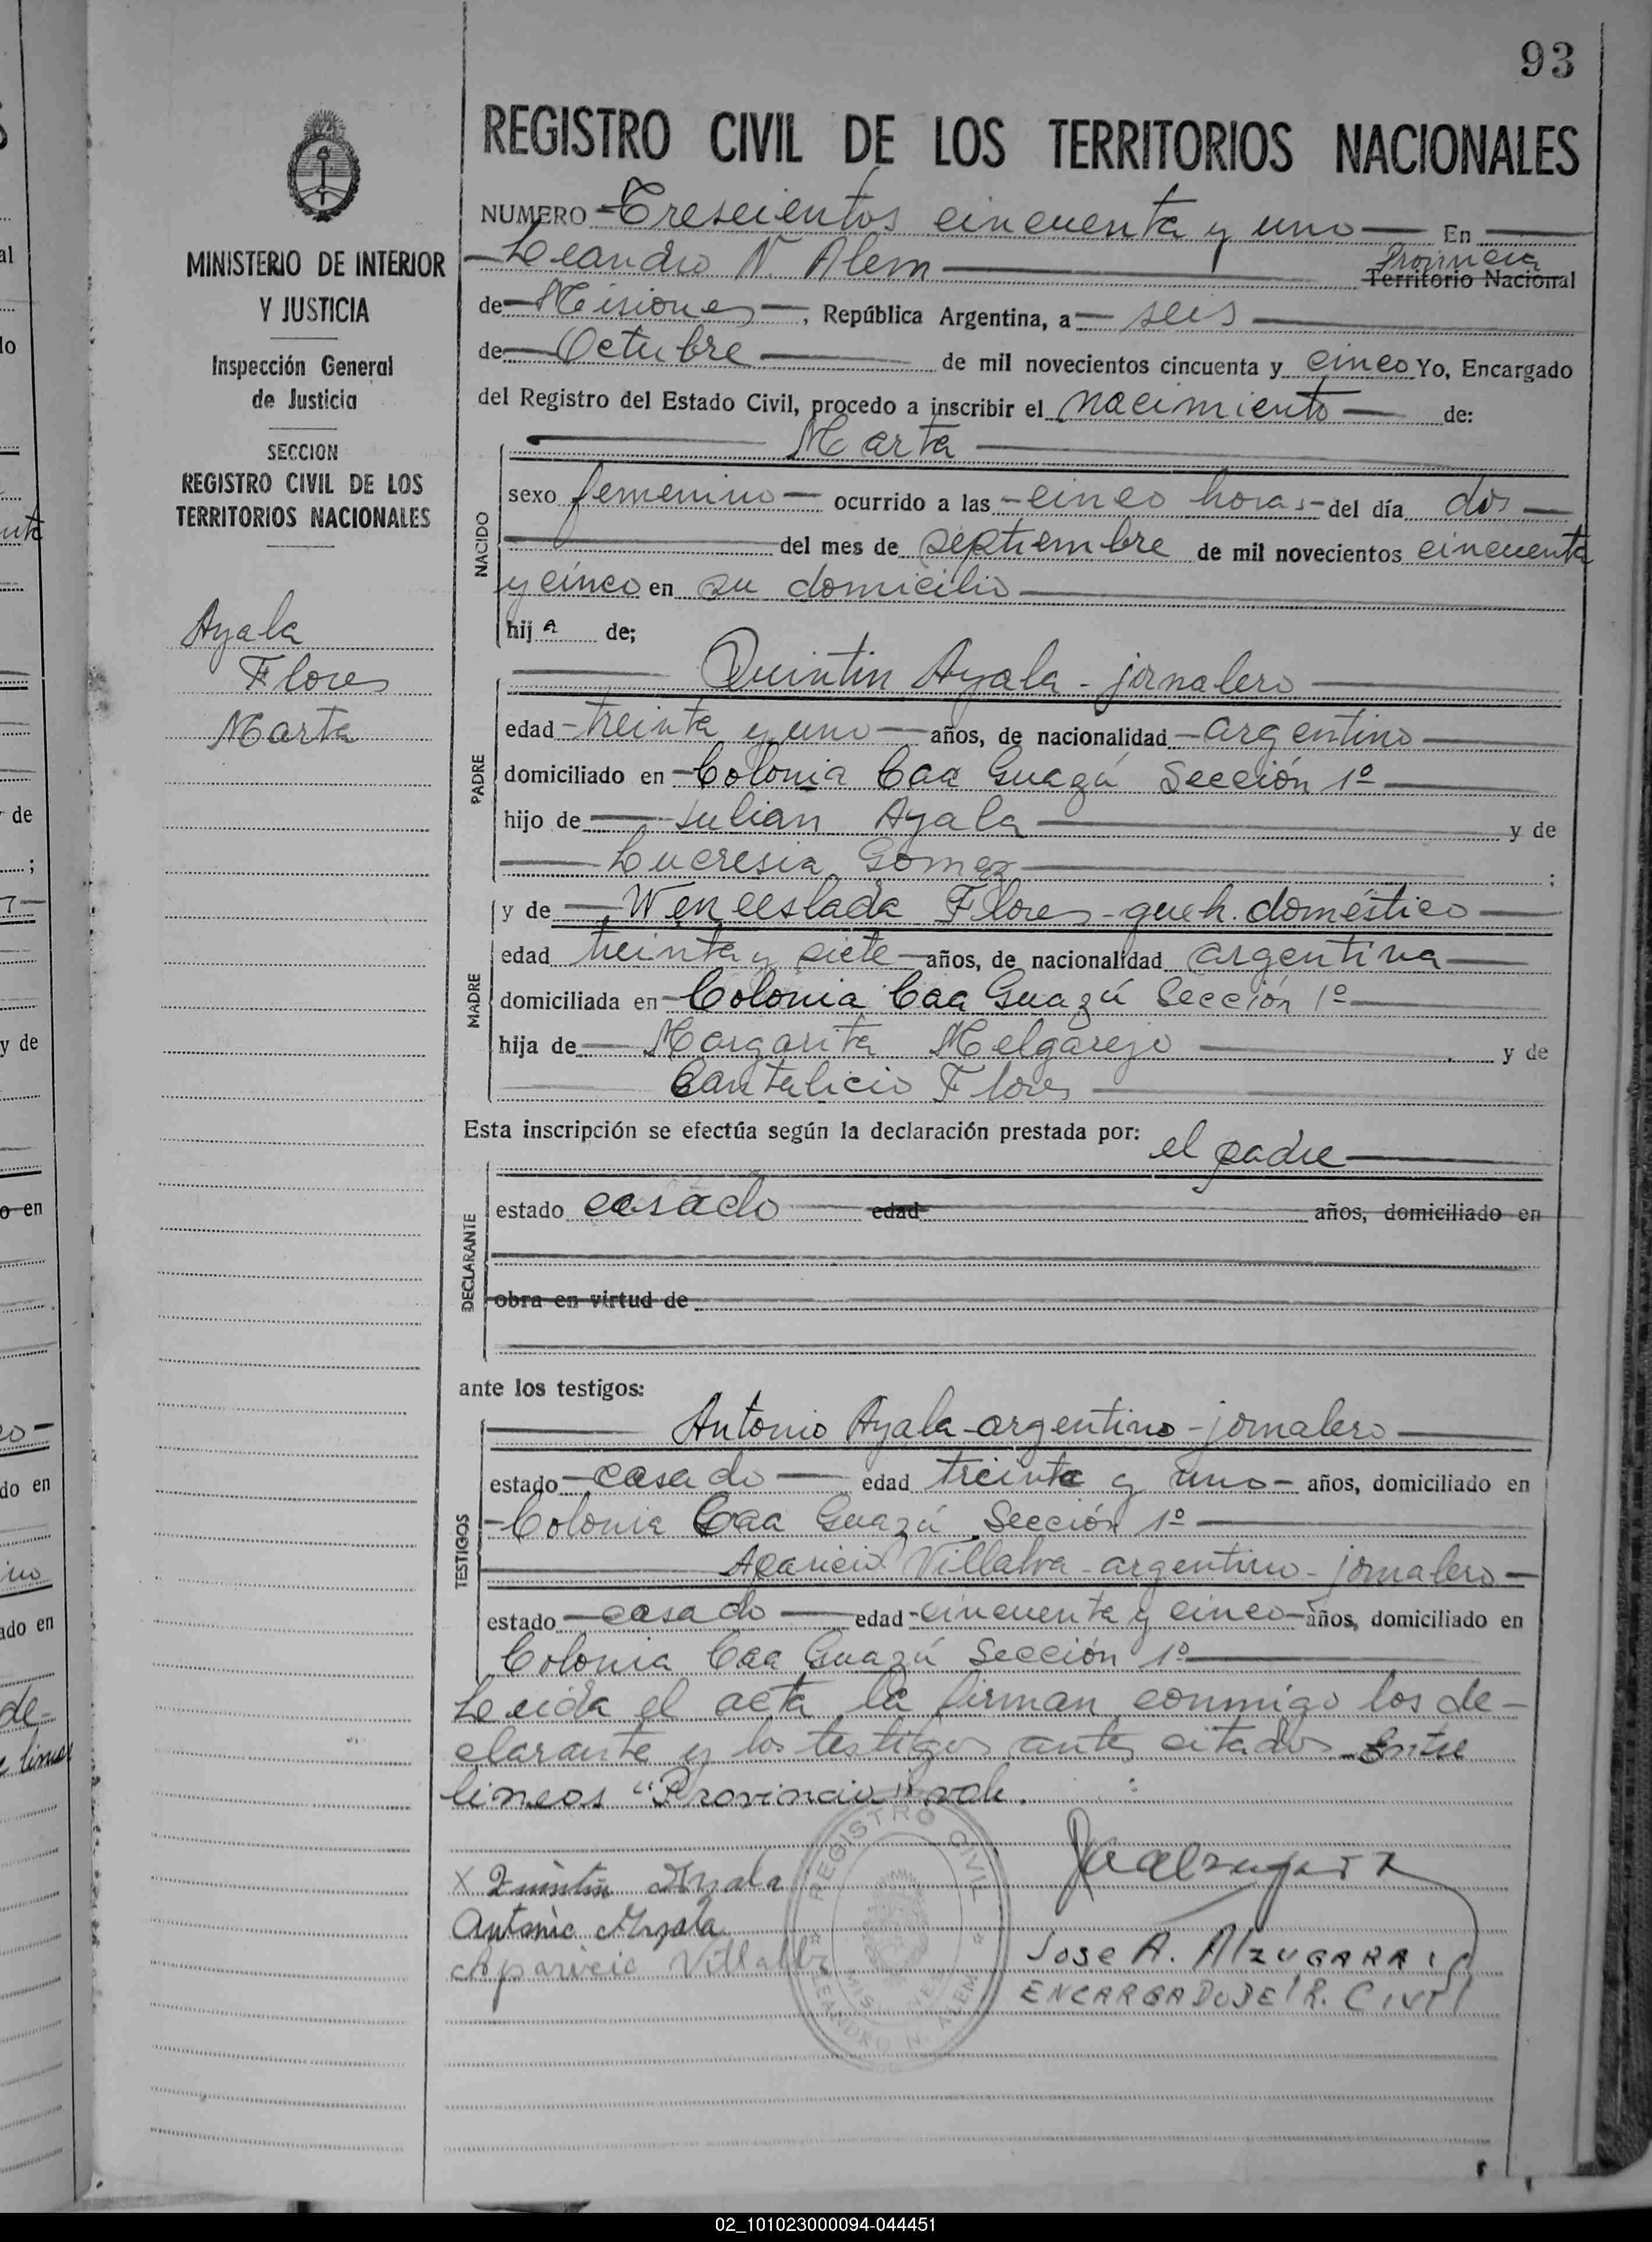 93
REGISTRO CIVIL DE LOS TERRITORIOS NACIONALES
MINISTERIO DE INTERIOR
Y JUSTICIA
Inspección General
de Justicia
SECCION
REGISTRO CIVIL DE LOS
TERRITORIOS NACIONALES
Ayala
Flores
Marta
NUMERO Trescientos cincuenta y uno En
Leandro N. Alem Provincia Territorio Nacional
de Misiones, República Argentina, a seis
de Octubre de mil novecientos cincuenta y cinco Yo, Encargado
del Registro del Estado Civil, procedo a inscribir el nacimiento de:
Marta
NACIDO
sexo femenino ocurrido a las cinco horas del día dos
del mes de septiembre de mil novecientos cincuenta
y cinco en su domicilio
hija de;
Quintin Ayala - jornalero
PADRE
edad treinta y uno años, de nacionalidad argentino
domiciliado en Colonia Caa Guazú Sección 1º
hijo de Julian Ayala y de
Lucresia Gomez ;
y de Wenceslada Flores - queh. doméstico
MADRE
edad treinta y siete años, de nacionalidad argentina
domiciliada en Colonia Caa Guazú Sección 1º
hija de Margarita Melgarejo y de
Cantalicio Flores
Esta inscripción se efectúa según la declaración prestada por: el padre
DECLARANTE
estado casado edad años, domiciliado en
obra en virtud de
ante los testigos:
Antonio Ayala - argentino - jornalero
TESTIGOS
estado casado edad treinta y uno años, domiciliado en
Colonia Caa Guazú Sección 1º
Aparicio Villalva - argentino - jornalero
estado casado edad cincuenta y cinco años, domiciliado en
Colonia Caa Guazú Sección 1º
Leida el acta la firman conmigo los de-
clarante y los testigos antes citados Entre
lineas "Provincia" vale.
X Quintin Ayala
Antonio Ayala
Aparicio Villalba
REGISTRO CIVIL
LEANDRO N. ALEM
MISIONES
Jose A. Alzugaray
ENCARGADO DEL R. CIVIL
02_101023000094-044451